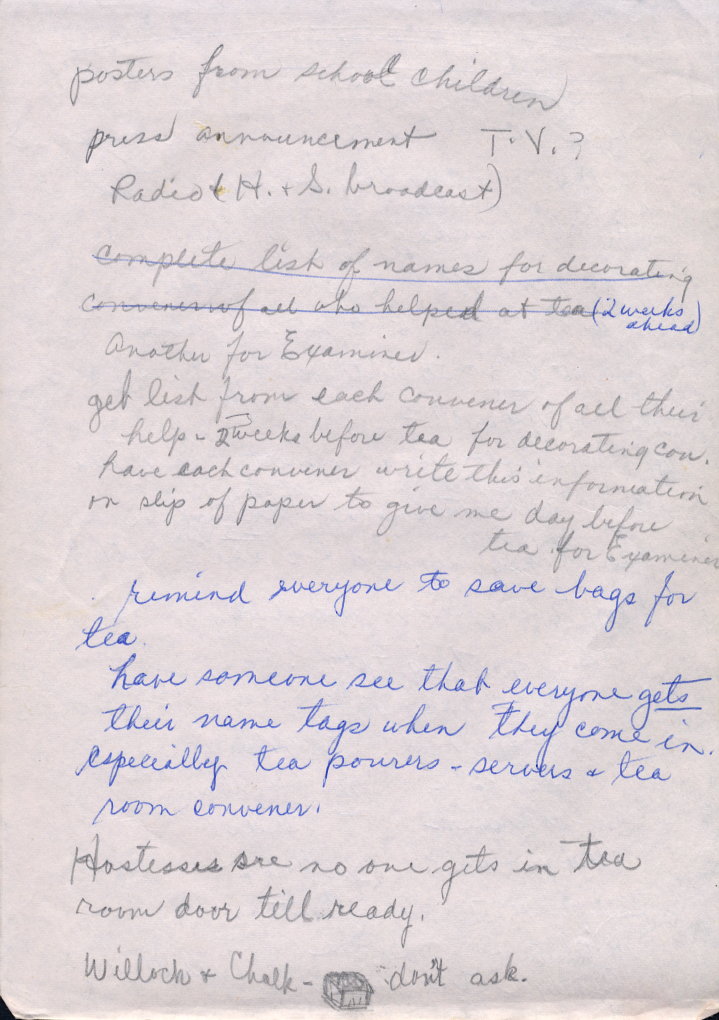 posters from school children
press announcement T.V.?
Radio (H. + S. broadcast)
complete list of names for decorating
convener of all who helped at tea (2 weeks
ahead)
Another for Examiner.
get list from each convener of all their
help - 2 weeks before tea for decorating con.
have each convener write this information
on slip of paper to give me day before
tea for Examiner
remind everyone to save bags for
tea.
have someone see that everyone gets
their name tags when they come in.
especially tea pourers - servers + tea
room convener.
Hostesses see no one gets in tea
room door till ready.
Willoch + Chalk - don't ask.